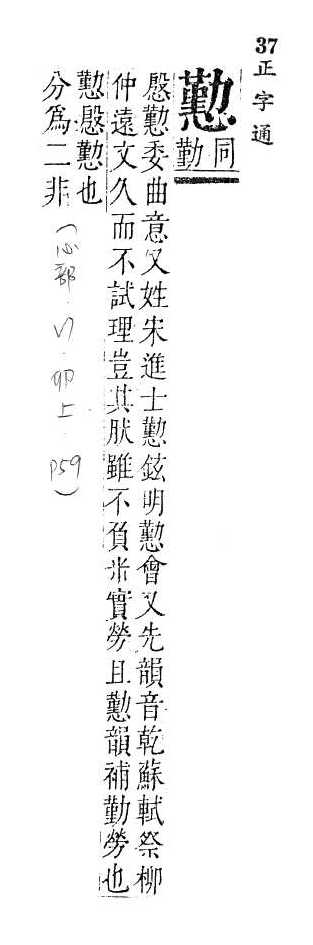 37 正字通
懃 同勤
慇懃委曲意又姓宋進士懃鉉明懃會又先韻音乾蘇軾祭柳
仲遠文久而不試理豈其肰雖不負米實勞且懃韻補勤勞也
懃慇懃也
分爲二非
(心部.卯上.P59)